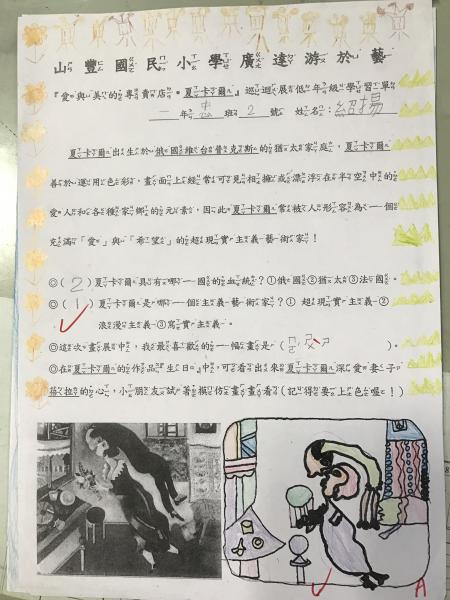 山豐國民小學廣達游於藝
『愛與美的專賣店・夏卡爾』巡迴展低年級學習單
一年忠班2號 姓名：紹揚
夏卡爾出生於俄國維台普克斯的猶太家庭，夏卡爾
善於運用色彩，畫面上經常可見相擁或漂浮在半空中的
愛人和各種家鄉的元素，因此夏卡爾常被人形容為一個
充滿「愛」與「希望」的超現實主義藝術家！
◎（2）夏卡爾具有哪一國的血統？①俄國②猶太③法國。
◎（1）夏卡爾是哪一個主義藝術家？①超現實主義②
浪漫主義③寫實主義。
◎這次畫展中，我最喜歡的一幅畫是（ ）。
◎在夏卡爾的作品『生日』中，可看出來夏卡爾深愛妻子
蓓拉的心，小朋友試著模仿畫畫看（記得要上色喔！）
A